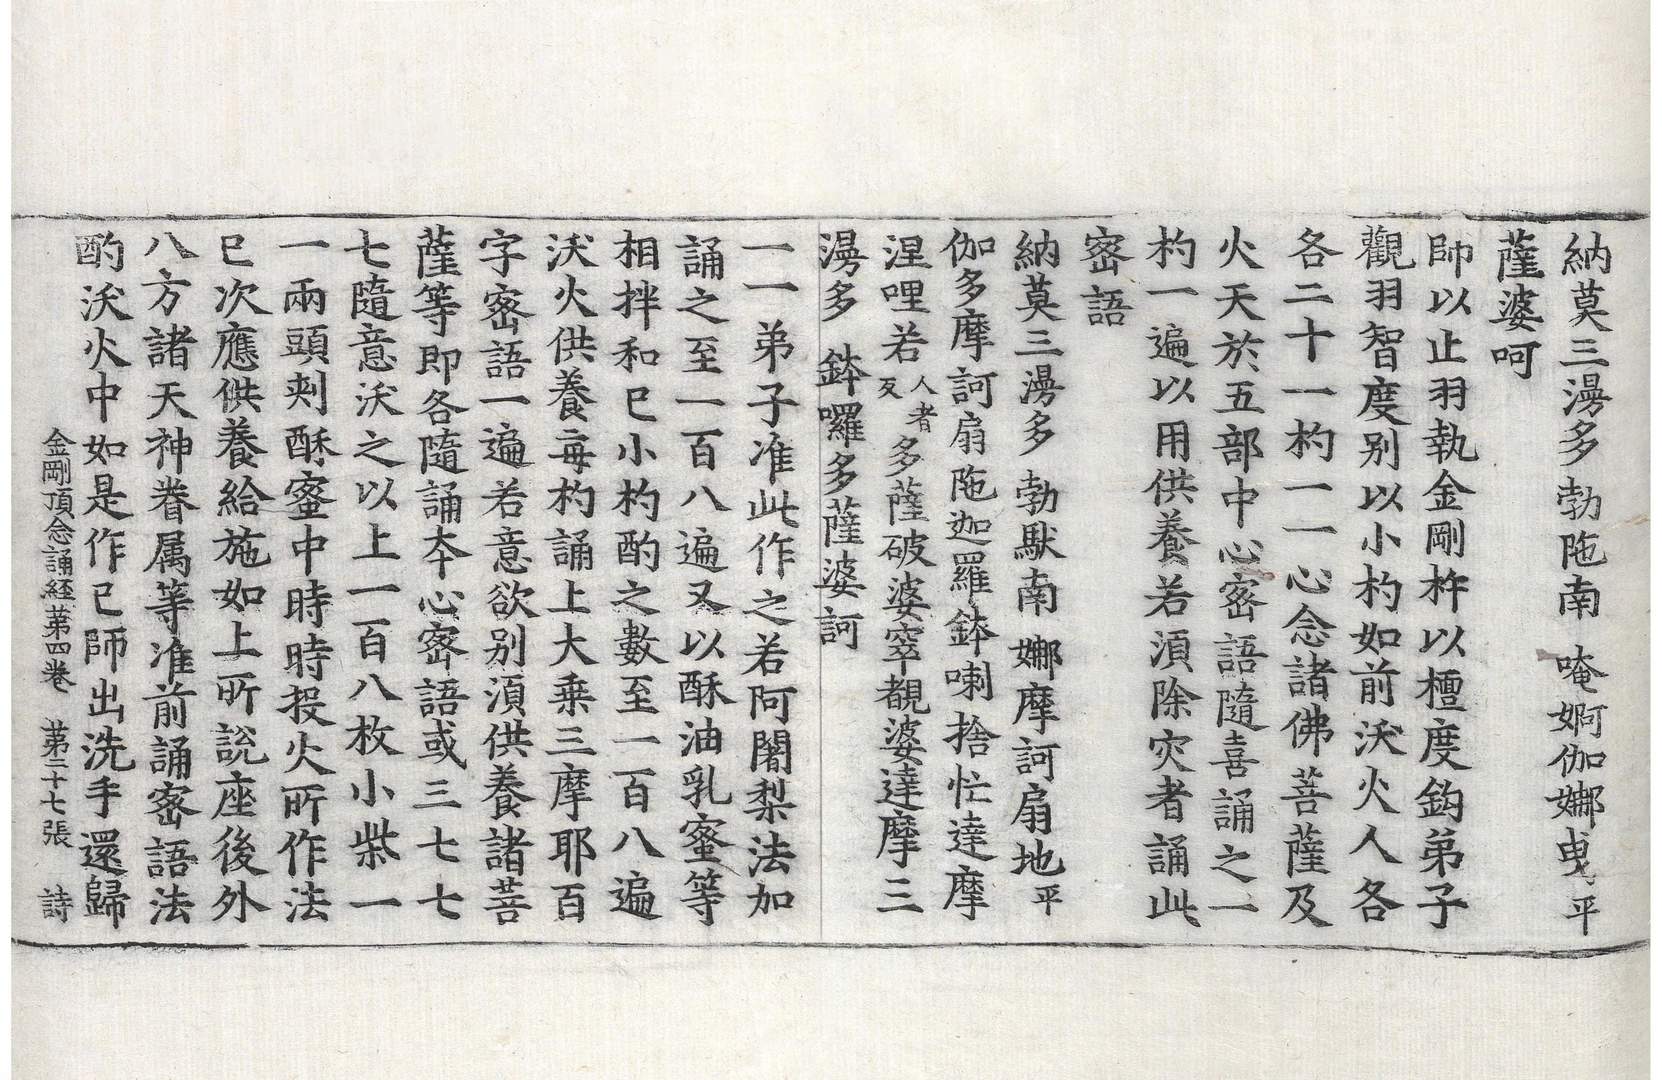 納莫三澷多勃陁南 唵婀伽娜曳平
薩婆呵
師以止羽執金剛杵以檀度鈎弟子
觀羽智度別以小杓如前沃火人各
各二十一杓一一心念諸佛菩薩及
火天於五部中心密語隨喜誦之一
杓一遍以用供養若湏除灾者誦此
密語
納莫三澷多勃馱南 娜摩訶扇地平
伽多摩訶扇陁迦羅鉢喇捨忙達摩
涅哩若人者反多薩破婆窣覩婆達摩三
澷多 鉢囉多薩婆訶
一一弟子准此作之若阿闍梨法加
誦之至一百八遍又以酥油乳蜜等
相拌和已小杓酌之數至一百八遍
沃火供養每杓誦上大乗三摩耶百
字密語一遍若意欲別湏供養諸菩
薩等即各隨誦夲心密語或三七七
七隨意沃之以上一百八枚小柴一
一兩頭刾酥蜜中時時投火所作法
已次應供養給施如上所說座後外
八方諸天神眷属等准前誦密語法
酌沃火中如是作已師出洗手還歸
金剛頂念誦経苐四卷 苐二十七張 詩